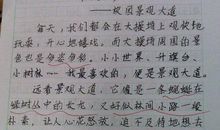 ——校园景观大道
每天，我们都会在大操场上欢快地
玩耍，开心地嬉戏，而大操场周围的景
色也是多姿多彩。小小世界、升旗台、
小树林……我最喜欢的，便是景观大道。
远看景观大道，它像是一条蜿蜒在
绿树丛中的大龙，又好似林间小路一般
朴素，让人心花怒放，迫不及待地想去